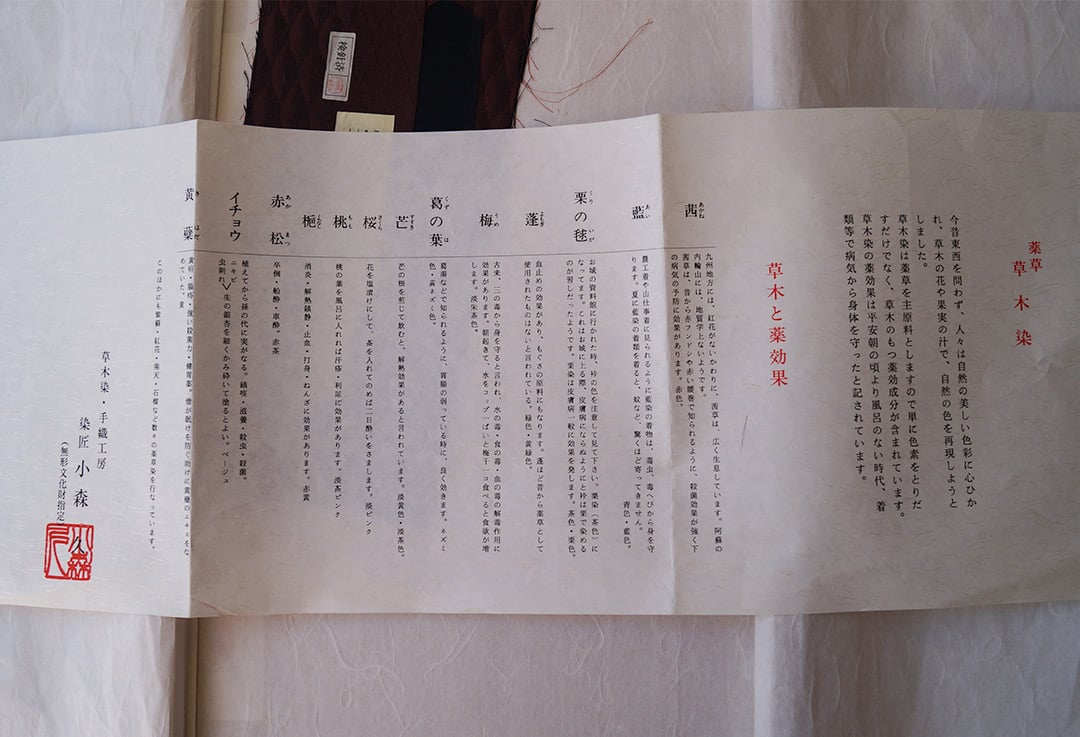 薬草
草木染
今昔東西を問わず、人々は自然の美しい色彩に心ひか
れ、草木の花や果実の汁で、自然の色を再現しようと
しました。
草木染は薬草を主原料としますので単に色素をとりだ
すだけでなく、草木のもつ薬効成分が含まれています。
草木染の薬効果は平安朝の頃より風呂のない時代、着
類等で病気から身体を守ったと記されています。
草木と薬効果
茜 あかね
九州地方には、紅花がないかわりに、茜草は、広く生息しています。阿蘇の
内輪山には、地質学上ないようです。
茜草は、昔から赤フンドシや赤い腰巻で知られるように、殺菌効果が強く下
の病気の予防に効果があります。赤色。
藍 あい
農工着や山仕事着に見られるように藍染の着物は、毒虫、毒ヘびから身を守
ります。夏に藍染の着類を着ると、蚊など、驚くほど寄ってきません。
青色・藍色。
栗の毬 くり いが
お城の資料館に行かれた時、衿の色を注意して見て下さい。栗染(茶色)に
なってます。これはお城に上る際、皮膚病にならぬようにと衿は栗で染める
のが習しだったようです。栗染は皮膚病一般に効果を発します。茶色・栗色。
蓬 よもぎ
血止めの効果があり、もぐさの原料にもなります。蓬ほど昔から薬草として
使用されたものはないと言われている。緑色・黄緑色。
梅 うめ
古来、三の毒から身を守ると言われ、水の毒・食の毒・血の毒の解毒作用に
効果があります。朝起きて、水をコップ一ぱいと梅干一コ食べると食欲が増
します。淡朱茶色。
葛の葉 くず は
葛湯などで知られるように、胃腸の弱っている時に、良く効きます。ネズミ
色・黄ネズミ色。
芒 すすき
芒の根を煎じて飲むと、解熱効果があると言われています。淡黄色・淡茶色。
桜 さくら
花を塩漬けにして、茶を入れてのめば二日酔いをさまします。淡ピンク
桃 もも
桃の葉を風呂に入れれば汗疹・利尿に効果があります。淡茶ピンク
梔 くちなし
消炎・解熱鎮静・止血・打身・ねんざに効果があります。赤黄
赤松 あか まつ
卒倒・船酔・車酔。赤茶
イチョウ
植えてから孫の代に実がなる。鎮咳・滋養・殺虫・殺菌。
ニキビ
虫刺れ
生の銀杏を細くかみ砕いて塗るとよい。ベージュ
黄蘗 き はだ
黄疸・腸痔・強い殺菌力・健胃薬・僧が眠けを防ぐ助けに黄蘗のエキスをな
めていた。黄
このほかにも紫蘇・紅花・南天・石榴など数々の薬草染を行なっています。
草木染・手織工房
染匠 小森 久
(無形文化財指定
検針済